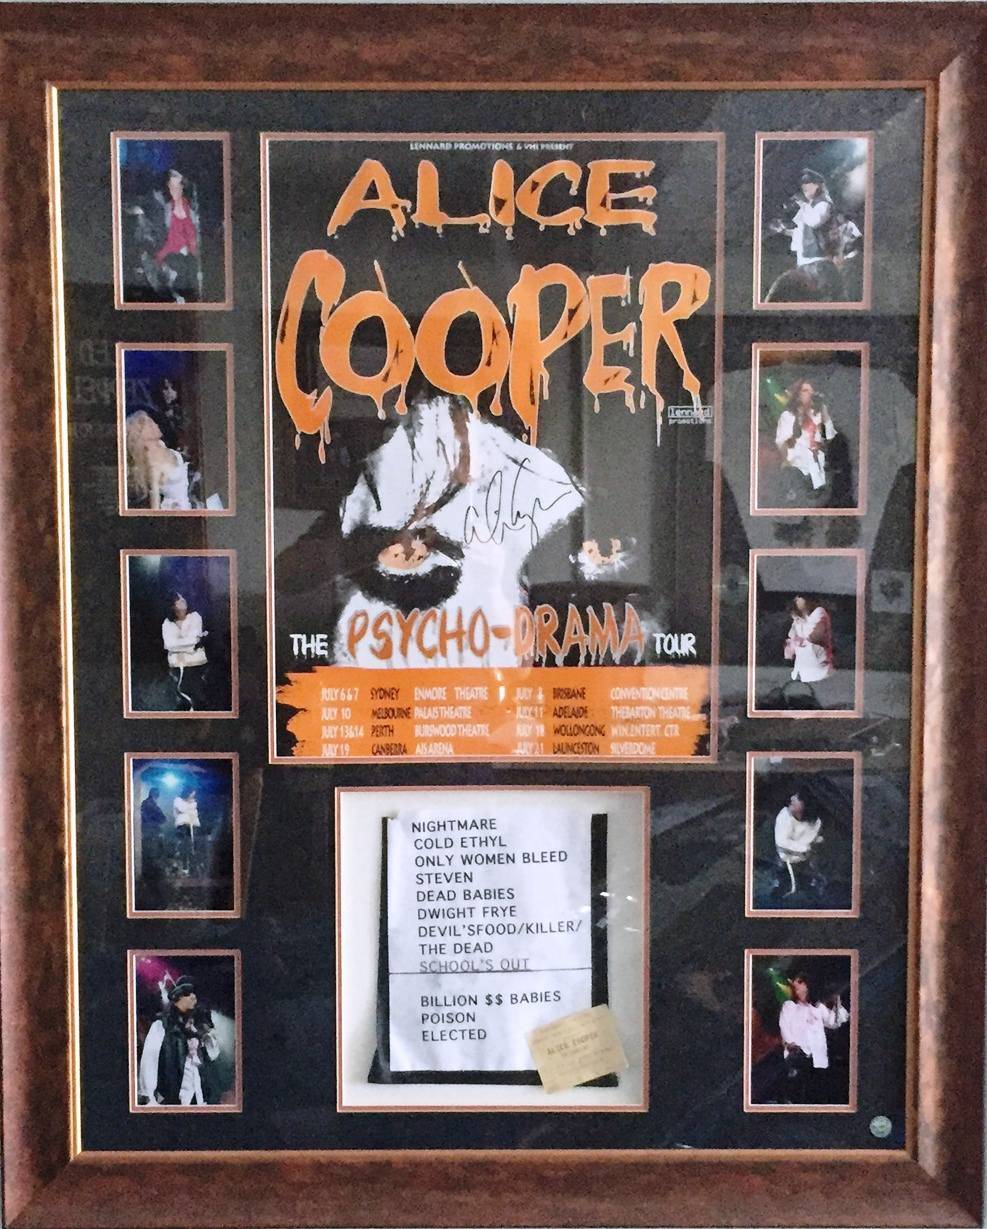 LENNARD PROMOTIONS & VH1 PRESENT
ALICE
COOPER
lennard
promotions
THE PSYCHO-DRAMA TOUR
JULY 6&7 SYDNEY ENMORE THEATRE JULY BRISBANE CONVENTION CENTRE
JULY 10 MELBOURNE PALAIS THEATRE JULY 11 ADELAIDE THEBARTON THEATRE
JULY 13&14 PERTH BURSWOOD THEATRE JULY 18 WOLLONGONG WIN.ENTERT. CTR
JULY 19 CANBERRA AIS ARENA JULY 21 LAUNCESTON SILVERDOME
NIGHTMARE
COLD ETHYL
ONLY WOMEN BLEED
STEVEN
DEAD BABIES
DWIGHT FRYE
DEVIL'SFOOD/KILLER/
THE DEAD
SCHOOL'S OUT
BILLION $$ BABIES
POISON
ELECTED
ALICE COOPER